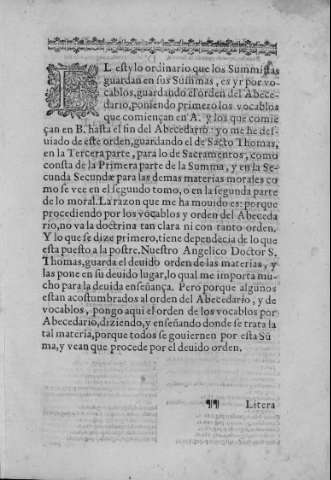 EL estylo ordinario que los Summistas
guardan en sus Sũmmas, es yr por vo-
cablos, guardando el orden del Abece-
dario, poniendo primero los vocablos
que comiençan en A. y los que comie
çan en B. hasta el fin del Abecedario: yo me des-
uiado de este orden, guardando el de Sãcto Thomas,
en la Tercera parte, para lo de Sacramentos, como
consta de la Primera parte de la Summa, y en la Se-
cunda Secundæ para las demas materias morales co
mo se vee en el segundo tomo, o en la segunda parte
de lo moral. La razon que me ha mouido es: porque
procediendo por los vocablos y orden del Abeceda
rio, no va la doctrina tan clara ni con tanto orden.
Y lo que se dize primero, tiene dependẽcia de lo que
esta puesto a la postre. Nuestro Angelico Doctor S.
Thomas, guarda el deuido orden de las materias, y
las pone en su deuido lugar, lo qual me importa mu-
cho para la deuida enseñança. Pero porque algunos
estan acostumbrados al orden del Abecedario, y de
vocablos, pongo aqui el orden de los vocablos por
Abecedario, diziendo, y enseñando donde se trata la
tal materia, porque todos se gouiernen por esta Sũ
ma, y vean que procede por el deuido orden.
¶¶ Litera